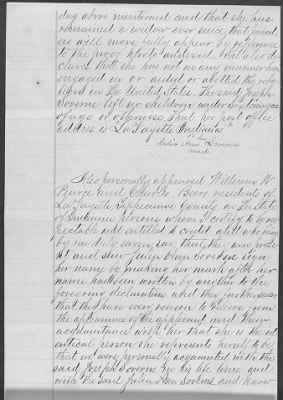 day above mentioned and that she has
remained a widow ever since that period
as will more fully appear by reference
to the proof hereto annexed She also de
clares that she has not in any manner been
engaged in or aided or abetted the rebel
lion in the United States The said Joseph
left no children under sixteen years
of age at That her post office
address is La Fayette Indiana
her
Julia Ann
mark
Also personally appeared William W
Pierce and Charles Beers residents of
La Fayette Tippecanoe County in the State
of Indiana persons whom I certify to be res
pectable and entitled to credit and who being
by me duly sworn say that they were pres
ent and saw Julia Ann sign
her name by making her mark after her
name had been written by another to the
foregoing declaration and they further swear
that they have every reason to believe from
the appearance of the applicant and their
acquaintance with her that she is the id
entical person she represents herself to be
that we were personally acquainted with the
said Joseph in his life time and
with the said Julia Ann and know